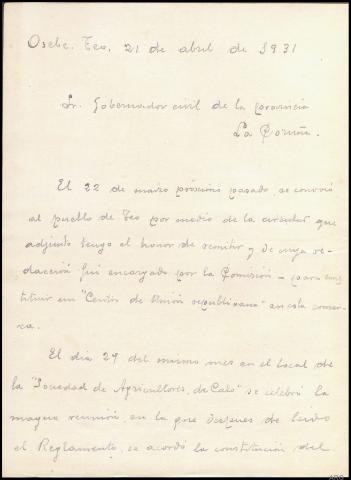 Osebe, Teo, 21 de abril de 1931
Sr. Gobernador civil de la provincia
La Coruña.
El 22 de marzo próximo pasado, se convocó
al pueblo de Teo por medio de la circular que
adjunto tengo el honor de remitir y de cuya re-
dacción fui encargado por la Comisión - para cons
tituir un "Centro de Unión republicana" en esta comar-
ca.
El dia 29 del mismo mes en el local de
la "Sociedad de Agricultores de Calo" se celebró la
magna reunión en la que despues de leido
el Reglamento, se acordó la constitución del